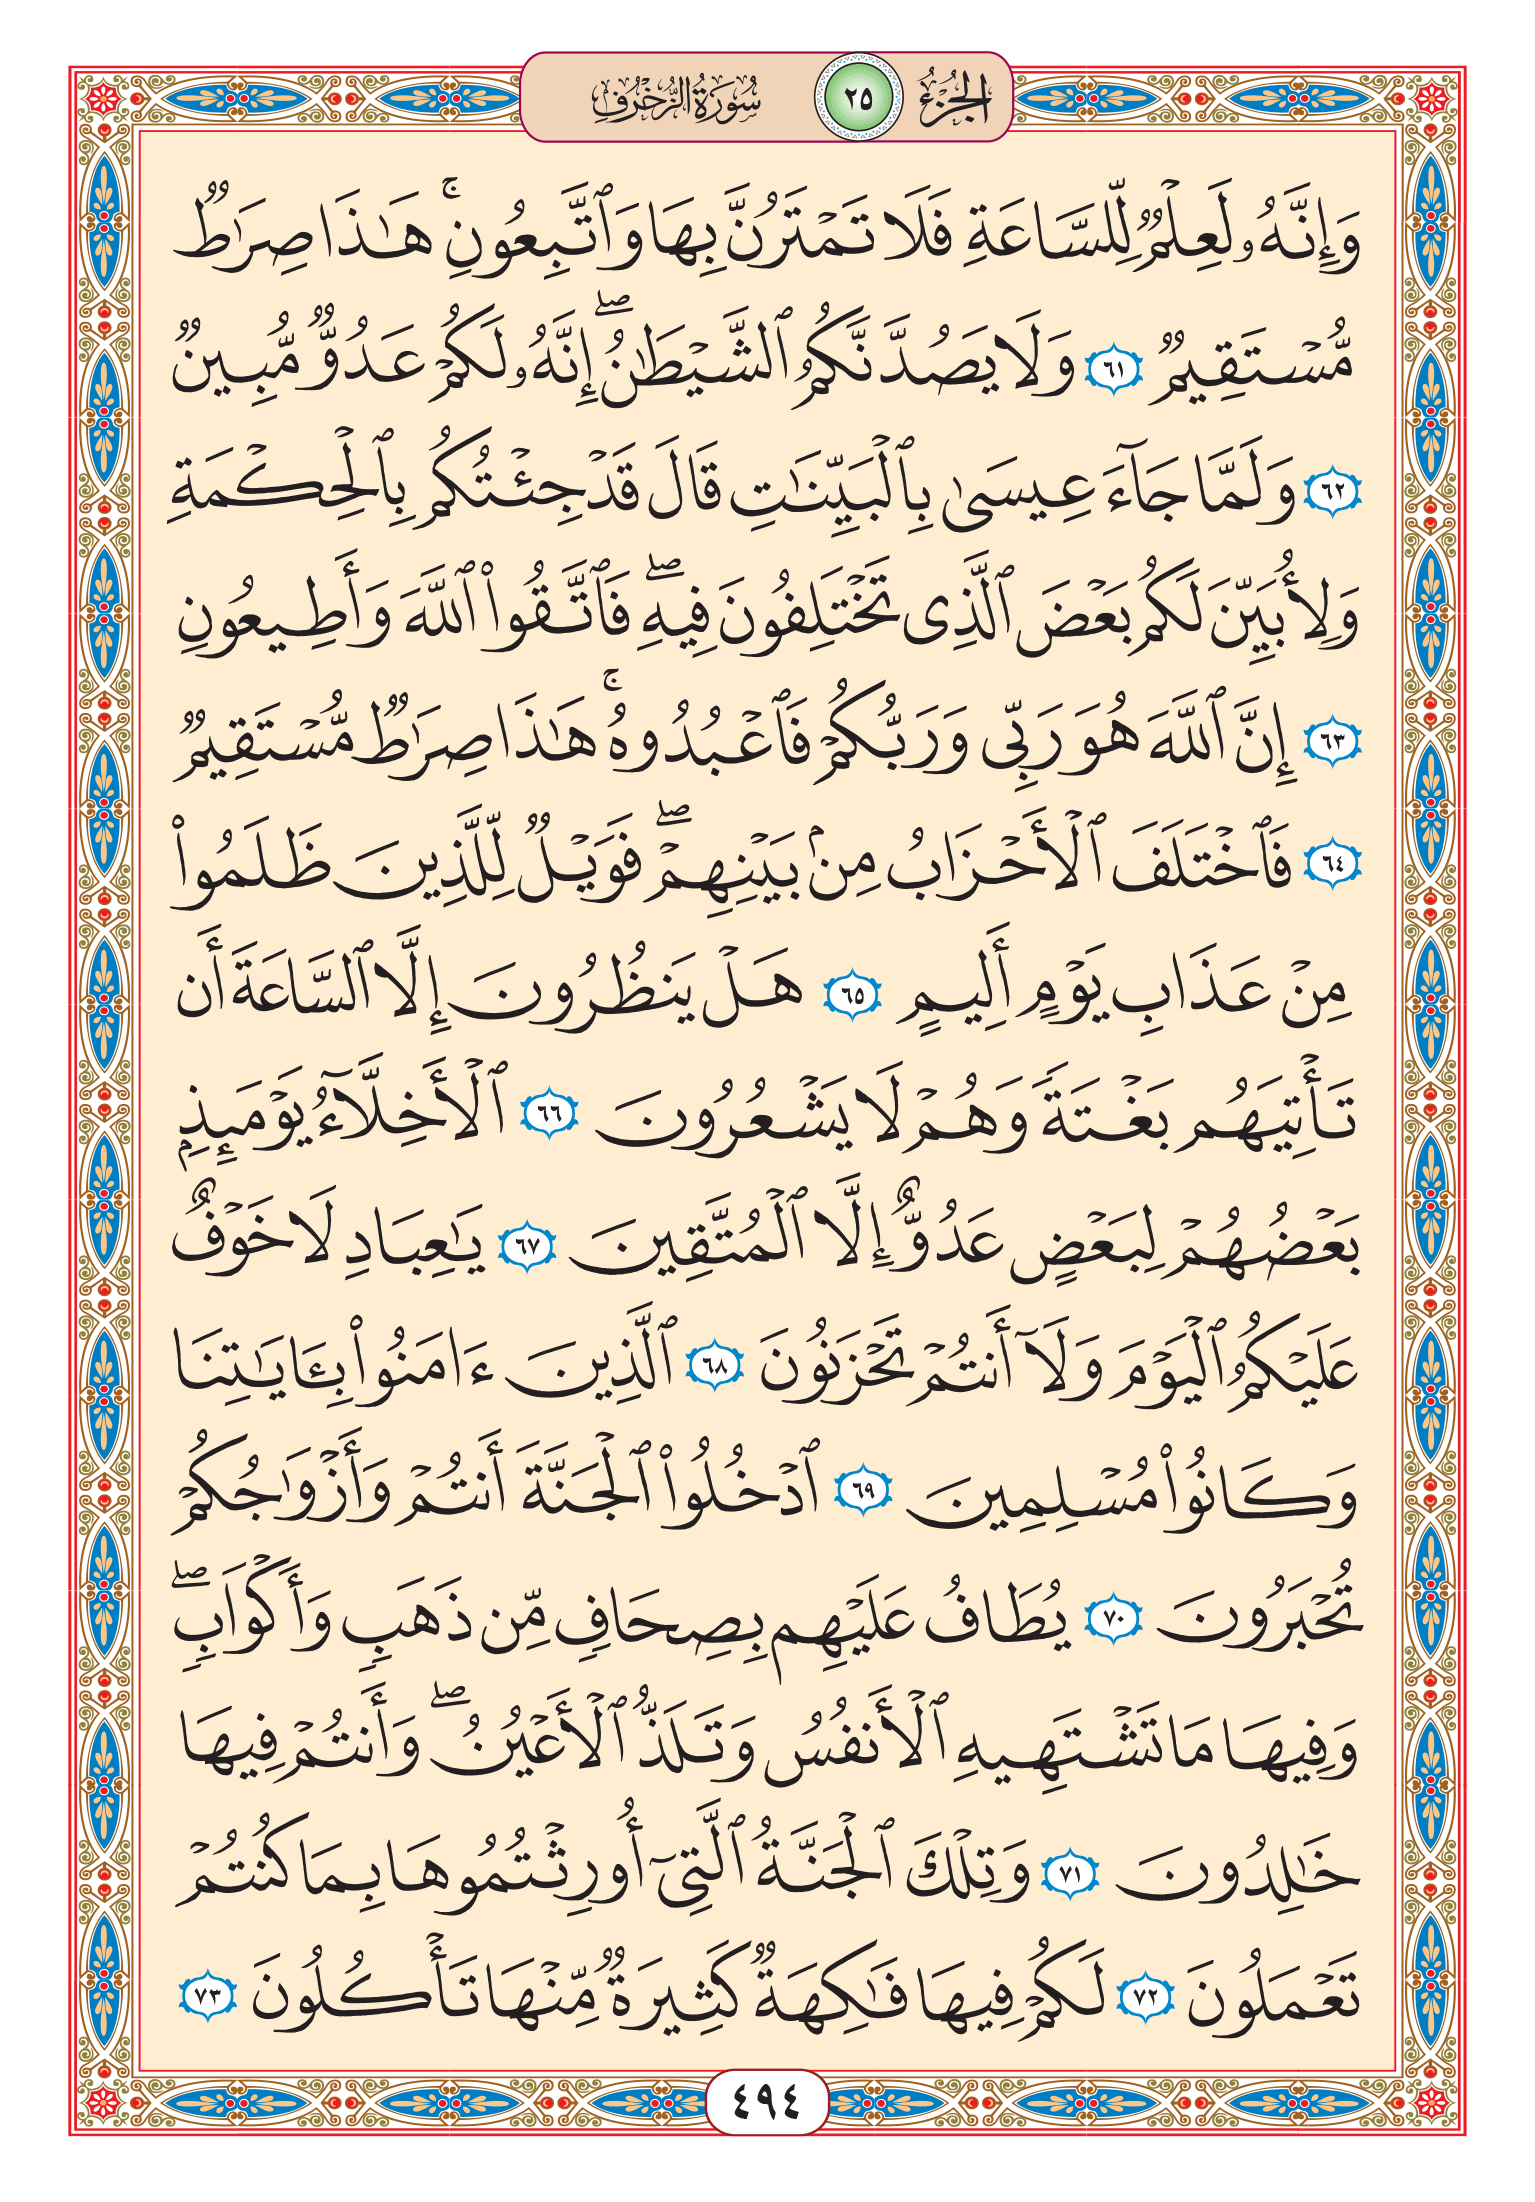 الجزء ٢٥ سورة الزخرف
وَإِنَّهُۥ لَعِلْمٌ لِّلسَّاعَةِ فَلَا تَمْتَرُنَّ بِهَا وَٱتَّبِعُونِ ۚ هَـٰذَا صِرَٰطٌ
مُّسْتَقِيمٌ ٦١ وَلَا يَصُدَّنَّكُمُ ٱلشَّيْطَـٰنُ ۖ إِنَّهُۥ لَكُمْ عَدُوٌّ مُّبِينٌ
٦٢ وَلَمَّا جَآءَ عِيسَىٰ بِٱلْبَيِّنَـٰتِ قَالَ قَدْ جِئْتُكُم بِٱلْحِكْمَةِ
وَلِأُبَيِّنَ لَكُم بَعْضَ ٱلَّذِى تَخْتَلِفُونَ فِيهِ ۖ فَٱتَّقُوا۟ ٱللَّهَ وَأَطِيعُونِ
٦٣ إِنَّ ٱللَّهَ هُوَ رَبِّى وَرَبُّكُمْ فَٱعْبُدُوهُ ۚ هَـٰذَا صِرَٰطٌ مُّسْتَقِيمٌ
٦٤ فَٱخْتَلَفَ ٱلْأَحْزَابُ مِنۢ بَيْنِهِمْ ۖ فَوَيْلٌ لِّلَّذِينَ ظَلَمُوا۟
مِنْ عَذَابِ يَوْمٍ أَلِيمٍ ٦٥ هَلْ يَنظُرُونَ إِلَّا ٱلسَّاعَةَ أَن
تَأْتِيَهُم بَغْتَةً وَهُمْ لَا يَشْعُرُونَ ٦٦ ٱلْأَخِلَّآءُ يَوْمَئِذٍۭ
بَعْضُهُمْ لِبَعْضٍ عَدُوٌّ إِلَّا ٱلْمُتَّقِينَ ٦٧ يَـٰعِبَادِ لَا خَوْفٌ
عَلَيْكُمُ ٱلْيَوْمَ وَلَآ أَنتُمْ تَحْزَنُونَ ٦٨ ٱلَّذِينَ ءَامَنُوا۟ بِـَٔايَـٰتِنَا
وَكَانُوا۟ مُسْلِمِينَ ٦٩ ٱدْخُلُوا۟ ٱلْجَنَّةَ أَنتُمْ وَأَزْوَٰجُكُمْ
تُحْبَرُونَ ٧٠ يُطَافُ عَلَيْهِم بِصِحَافٍ مِّن ذَهَبٍ وَأَكْوَابٍ ۖ
وَفِيهَا مَا تَشْتَهِيهِ ٱلْأَنفُسُ وَتَلَذُّ ٱلْأَعْيُنُ ۖ وَأَنتُمْ فِيهَا
خَـٰلِدُونَ ٧١ وَتِلْكَ ٱلْجَنَّةُ ٱلَّتِىٓ أُورِثْتُمُوهَا بِمَا كُنتُمْ
تَعْمَلُونَ ٧٢ لَكُمْ فِيهَا فَـٰكِهَةٌ كَثِيرَةٌ مِّنْهَا تَأْكُلُونَ ٧٣
٤٩٤